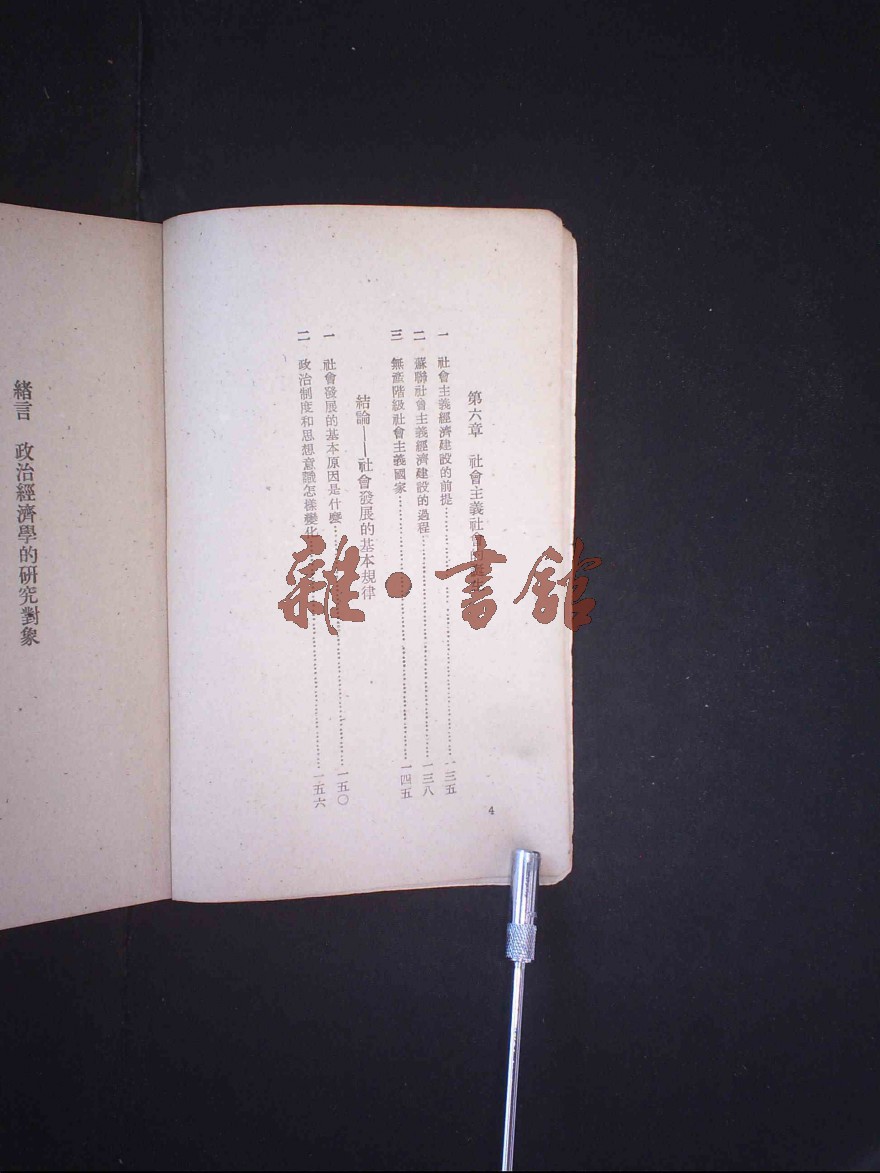 第六章　社會主義社會的
一　社會主義經濟建設的前提…………一三五
二　蘇聯社會主義經濟建設的過程…………一三八
三　無產階級社會主義國家…………一四五
結論——社會發展的基本規律
一　社會發展的基本原因是什麼…………一五〇
二　政治制度和思想意識怎樣變化…………一五六
4
緒言　政治經濟學的研究對象
雜·書館